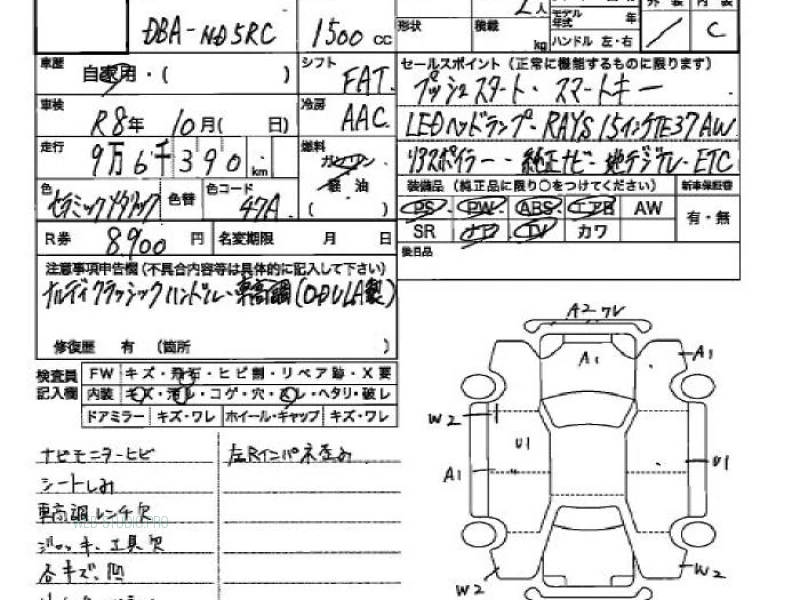 2人
外装 内装
DBA-ND5RC 1500 cc
形状 積載 kg モデル年式 年
ハンドル 左・右
C
車歴 自家用・( )
シフト FAT
セールスポイント(正常に機能するものに限ります)
プッシュスタート・スマートキー
車検 R8年 10月( 日)
冷房 AAC
LEDヘッドランプ・RAYS 15インチTE37AW
走行 9万6千390km
燃料 ガソリン 軽油 ( )
リアスポイラー・純正ナビ・地デジTV・ETC
色 セラミックメタリック 色替 色コード 47A
装備品(純正品に限り○をつけてください) 新車保証書
PS PW ABS エアB AW 有・無
SR ナビ TV カワ
R券 8900円 名変期限 月 日
後日品
注意事項申告欄(不具合内容等は具体的に記入して下さい)
ナルディクラシックハンドル・車高調(OBULA製)
修復歴 有 (箇所 )
検査員記入欄
FW キズ・飛石・ヒビ割・リペア跡・X要
内装 キズ・汚レ・コゲ・穴・スレ・ヘタリ・破レ
ドアミラー キズ・ワレ ホイール・キャップ キズ・ワレ
ナビモニターヒビ
左Rインパネ歪み
シートしみ
車高調レンチ欠
WEB-STUDIO.PRO
ジャッキ、工具欠
各キズ、凹
A2 ワレ
A1
A1
W2
U1
A1
U1
W2
W2